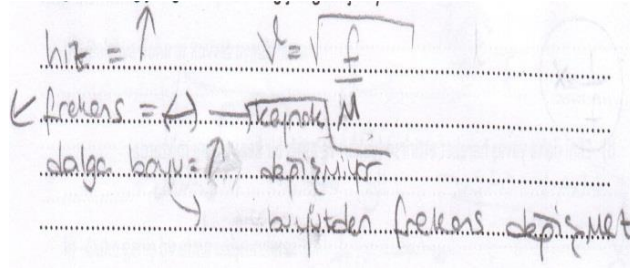 hız = ↑ V = √f/μ
← frekans = (-) → kaynak
dalga boyu = ↑, değişmiyor
→ frekans değişmez